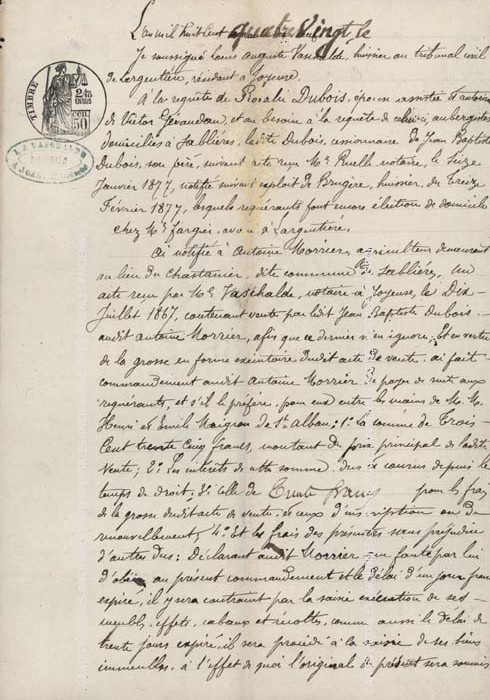 L'an mil huit cent quatre vingt le
Je soussigné Louis Auguste Vaschalde, huissier au tribunal civil
de Largentière, résidant à Joyeuse.
A la requête de Rosalie Dubois, épouse assistée d'antoine
de Victor Géraudan, et au besoin à la requête de celui-ci, aubergistes
domiciliés à Sablières, ladite Dubois, cessionnaire de Jean Baptiste
Dubois, son père, suivant acte reçu Me Ruelle notaire, le Seize
Janvier 1877, notifié suivant exploit de Brugère, huissier, du Treize
Février 1877, lesquels requérants font encore élection de domicile
chez Me avoué à Largentière.
Ai notifié à Antoine Morrier, agriculteur demeurant
au lieu du Chastanier, dite commune de Sablières, Un
acte reçu par Me Vaschalde, notaire à Joyeuse, le Dix
Juillet 1867, contenant vente par ledit Jean Baptiste Dubois
audit Antoine Morrier, afin que ce dernier n'en ignore; Et en vertu
de la grosse en forme exécutoire dudit acte de vente, ai fait
commandement audit Antoine Morrier de payer de suite aux
requérants, et s'il le préfère, pour eux entre les mains de M. M.
Henri et Emile Maigron de St Alban; 1° la somme de Trois
Cent trente Cinq francs, montant du prix principal de ladite
Vente; 2° Les intérêts de cette somme dus et courus depuis le
temps de droit; 3° celle de Trente francs pour les frais
de la grosse dudit acte de vente, et ceux d'inscription ou de
renouvellement; 4° Et les frais des présentes sans préjudice
d'autres dus: Déclarant audit Morrier en faute par lui
d'obéir au présent commandement et le délai d'un jour franc
expiré, il y sera contraint par la saisie exécution de ses
meubles, effets, cabaux et récoltes, comme aussi le délai de
trente jours expiré, il sera procédé à la saisie de ses biens
immeubles, à l'effet de quoi l'original du présent sera soumis
TIMBRE
2/10
EN SUS
50